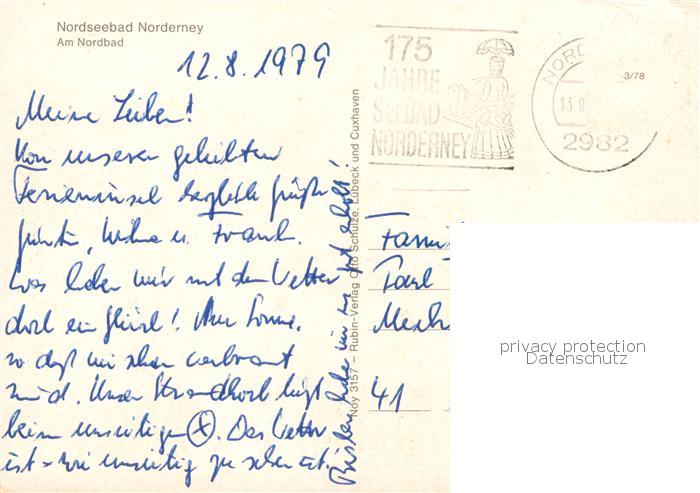 Nordseebad Norderney
Am Nordbad
12.8.1979
Meine Lieben!
Von unserer geliebten
Ferieninsel herzliche Grüße
was haben wir mit dem Wetter
doch ein Glück! Nur Sonne,
so daß wir schon verbrannt
sind. Unser Strandkorb liegt
beim umseitigen X. Das Wetter
ist wie umseitig zu sehen ist.
Bisher habe wir uns gut erholt!
Noy 3157 – Rubin-Verlag Otto Schulze, Lübeck und Cuxhaven
175
JAHRE
SEEBAD
NORDERNEY
NORD
13.8
2982
3/78
Fami
41
privacy protection
Datenschutz